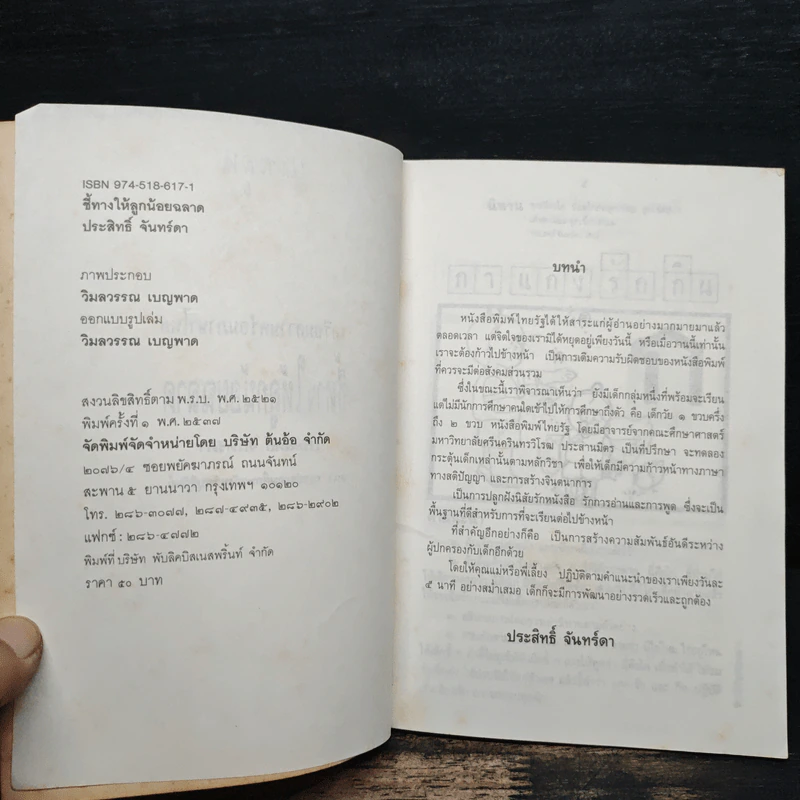 ISBN 974-518-617-1
ชี้ทางให้ลูกน้อยฉลาด
ประสิทธิ์ จันทร์ดา
ภาพประกอบ
วิมลวรรณ เบญพาด
ออกแบบรูปเล่ม
วิมลวรรณ เบญพาด
สงวนลิขสิทธิ์ตาม พ.ร.บ. พ.ศ.๒๕๒๑
พิมพ์ครั้งที่ ๑ พ.ศ.๒๕๓๗
จัดพิมพ์จัดจำหน่ายโดย บริษัท ต้นอ้อ จำกัด
๒๐๗๖/๔ ซอยพยัคฆาภรณ์ ถนนจันทน์
สะพาน ๕ ยานนาวา กรุงเทพฯ ๑๐๑๒๐
โทร. ๒๘๖-๓๐๗๗, ๒๘๗-๔๙๓๕, ๒๘๖-๒๙๐๒
แฟกซ์ : ๒๘๖-๔๗๗๒
พิมพ์ที่ บริษัท พับลิคบิสเนสพริ้นท์ จำกัด
ราคา ๕๐ บาท
บทนำ
หนังสือพิมพ์ไทยรัฐได้ให้สาระแก่ผู้อ่านอย่างมากมายมาแล้ว
ตลอดเวลา แต่จิตใจของเรามิได้หยุดอยู่เพียงวันนี้ หรือเมื่อวานนี้เท่านั้น
เราจะต้องก้าวไปข้างหน้า เป็นการเติมความรับผิดชอบของหนังสือพิมพ์
ที่ควรจะมีต่อสังคมส่วนรวม
ซึ่งในขณะนี้เราพิจารณาเห็นว่า ยังมีเด็กกลุ่มหนึ่งที่พร้อมจะเรียน
แต่ไม่มีนักการศึกษาคนใดเข้าไปให้การศึกษาถึงตัว คือ เด็กวัย ๑ ขวบครึ่ง
ถึง ๒ ขวบ หนังสือพิมพ์ไทยรัฐ โดยมีอาจารย์จากคณะศึกษาศาสตร์
มหาวิทยาลัยศรีนครินทรวิโรฒ ประสานมิตร เป็นที่ปรึกษา จะทดลอง
กระตุ้นเด็กเหล่านั้นตามหลักวิชา เพื่อให้เด็กมีความก้าวหน้าทางภาษา
ทางสติปัญญา และการสร้างจินตนาการ
เป็นการปลูกฝังนิสัยรักหนังสือ รักการอ่านและการพูด ซึ่งจะเป็น
พื้นฐานที่ดีสำหรับการที่จะเรียนต่อไปข้างหน้า
ที่สำคัญอีกอย่างก็คือ เป็นการสร้างความสัมพันธ์อันดีระหว่าง
ผู้ปกครองกับเด็กอีกด้วย
โดยให้คุณแม่หรือพี่เลี้ยง ปฏิบัติตามคำแนะนำของเราเพียงวันละ
๕ นาที อย่างสม่ำเสมอ เด็กก็จะมีการพัฒนาอย่างรวดเร็วและถูกต้อง
ประสิทธิ์ จันทร์ดา